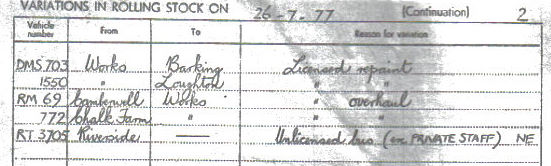 VARIATIONS IN ROLLING STOCK ON 26-7-77 (Continuation) 2
Vehicle number From To Reason for variation
DMS 703 Works Barking Licensed repaint
1550 " Loughton " "
RM 69 Camberwell Works " overhaul
772 Chalk Farm " " "
RT 3705 Riverside — Unlicensed bus (ex PRIVATE STAFF) NE